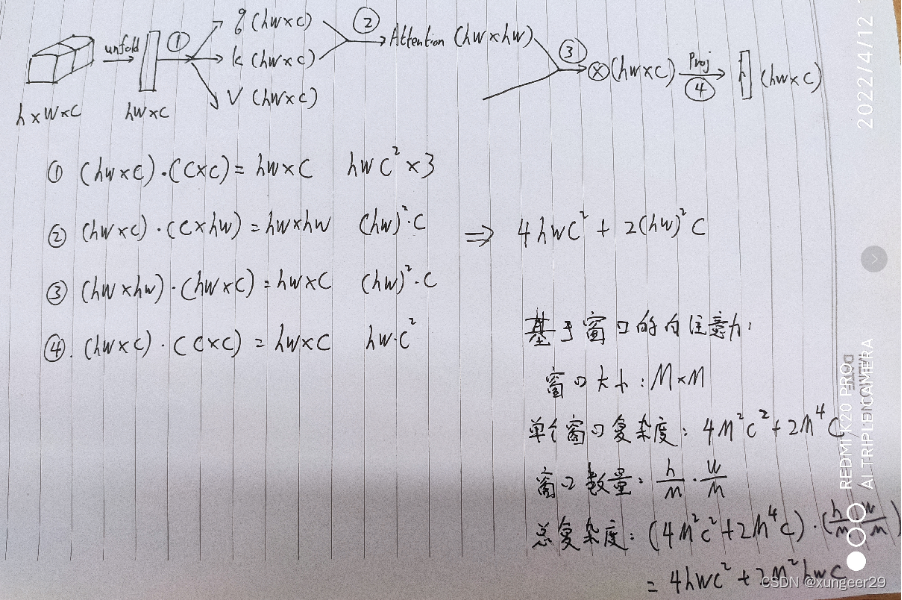 unfold ① q (hw×c) ② Attention (hw×hw)
k (hw×c) ③ ⊗(hw×c) Proj ④ (hw×c)
h×w×c hw×c V (hw×c)
① (hw×c)·(c×c) = hw×c hwc²×3
② (hw×c)·(c×hw) = hw×hw (hw)²·c ⇒ 4hwc² + 2(hw)²c
③ (hw×hw)·(hw×c) = hw×c (hw)²·c
④. (hw×c)·(c×c) = hw×c hw·c²
基于窗口的自注意力:
窗口大小: M×M
单个窗口复杂度: 4M²c²+2M⁴c
窗口数量: h/M · w/M
总复杂度: (4M²c²+2M⁴c)·(h/M · w/M)
= 4hwc² + 2M²hwc
2022/4/12
REDMI K20 PRO
AI TRIPLE CAMERA
CSDN @xungeer29